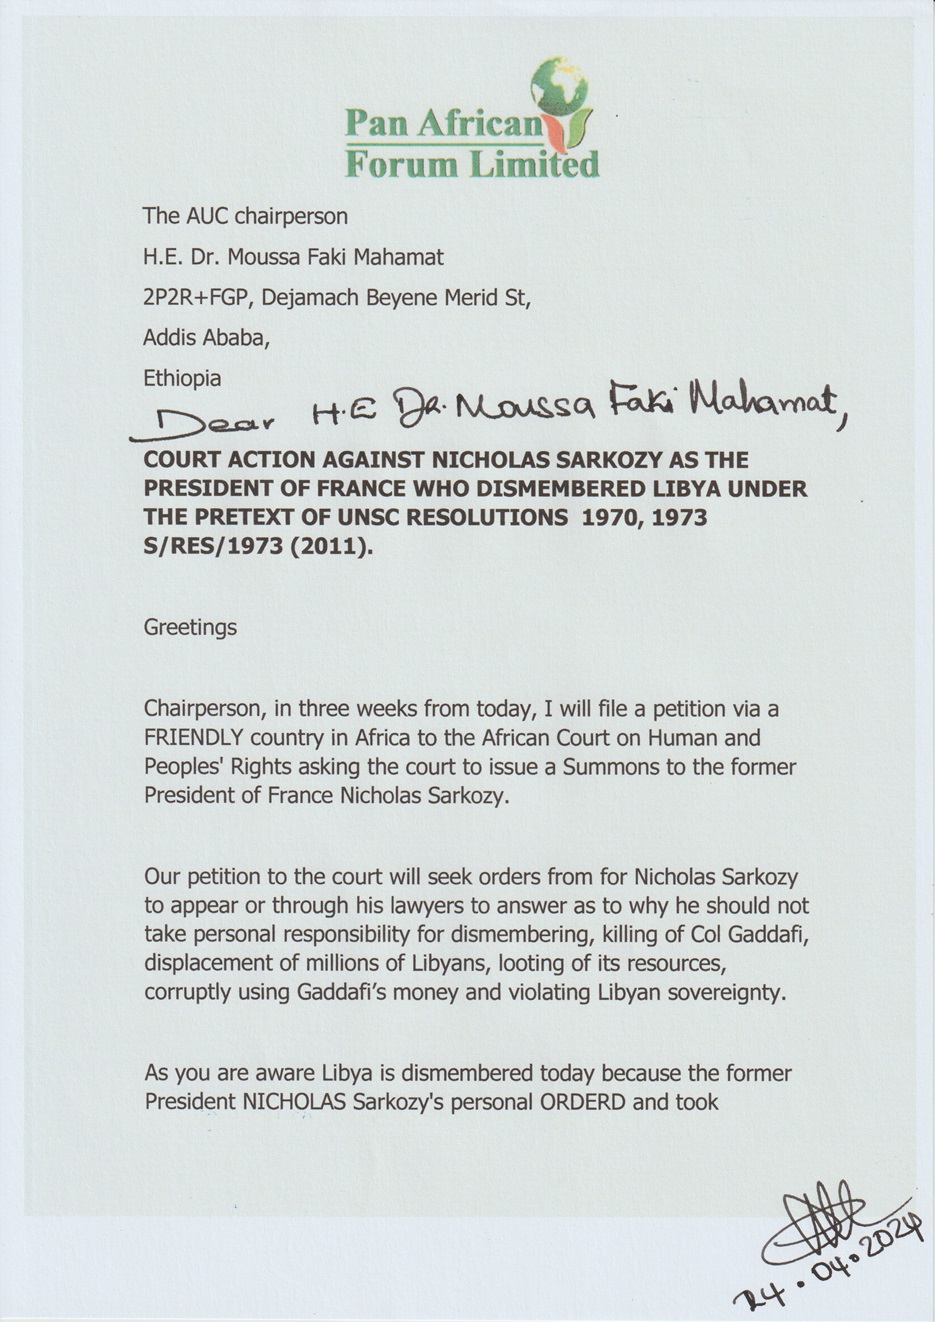 Pan African
Forum Limited
The AUC chairperson
H.E. Dr. Moussa Faki Mahamat
2P2R+FGP, Dejamach Beyene Merid St,
Addis Ababa,
Ethiopia
Dear H.E Dr. Moussa Faki Mahamat,
COURT ACTION AGAINST NICHOLAS SARKOZY AS THE
PRESIDENT OF FRANCE WHO DISMEMBERED LIBYA UNDER
THE PRETEXT OF UNSC RESOLUTIONS 1970, 1973
S/RES/1973 (2011).
Greetings
Chairperson, in three weeks from today, I will file a petition via a
FRIENDLY country in Africa to the African Court on Human and
Peoples' Rights asking the court to issue a Summons to the former
President of France Nicholas Sarkozy.
Our petition to the court will seek orders from for Nicholas Sarkozy
to appear or through his lawyers to answer as to why he should not
take personal responsibility for dismembering, killing of Col Gaddafi,
displacement of millions of Libyans, looting of its resources,
corruptly using Gaddafi’s money and violating Libyan sovereignty.
As you are aware Libya is dismembered today because the former
President NICHOLAS Sarkozy's personal ORDERD and took
24.04.2024